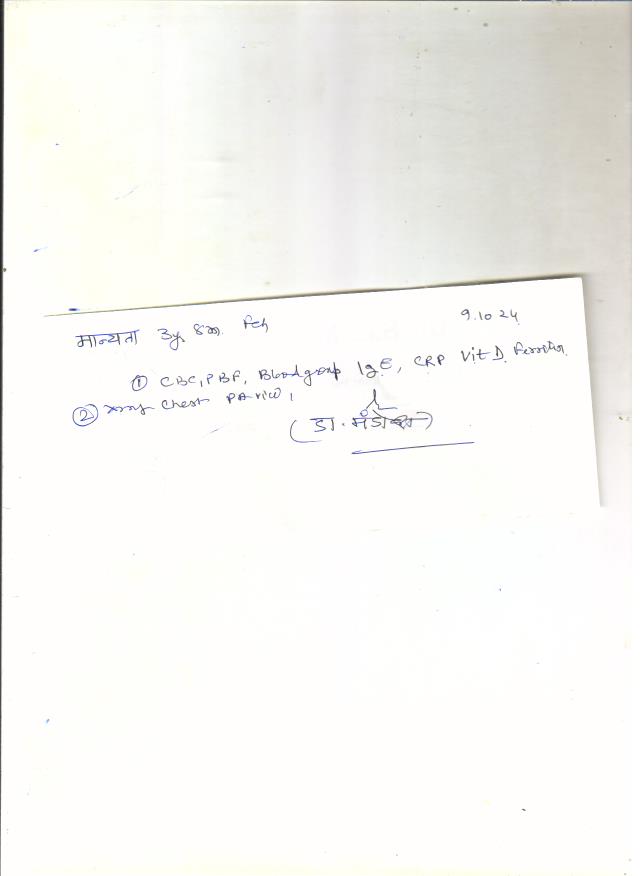 मान्यता 3y 8m. Fch 9.10.24
① CBC, PBF, Bloodgroup IgE, CRP Vit D. Ferritin
② xray Chest PA view,
( डा. )